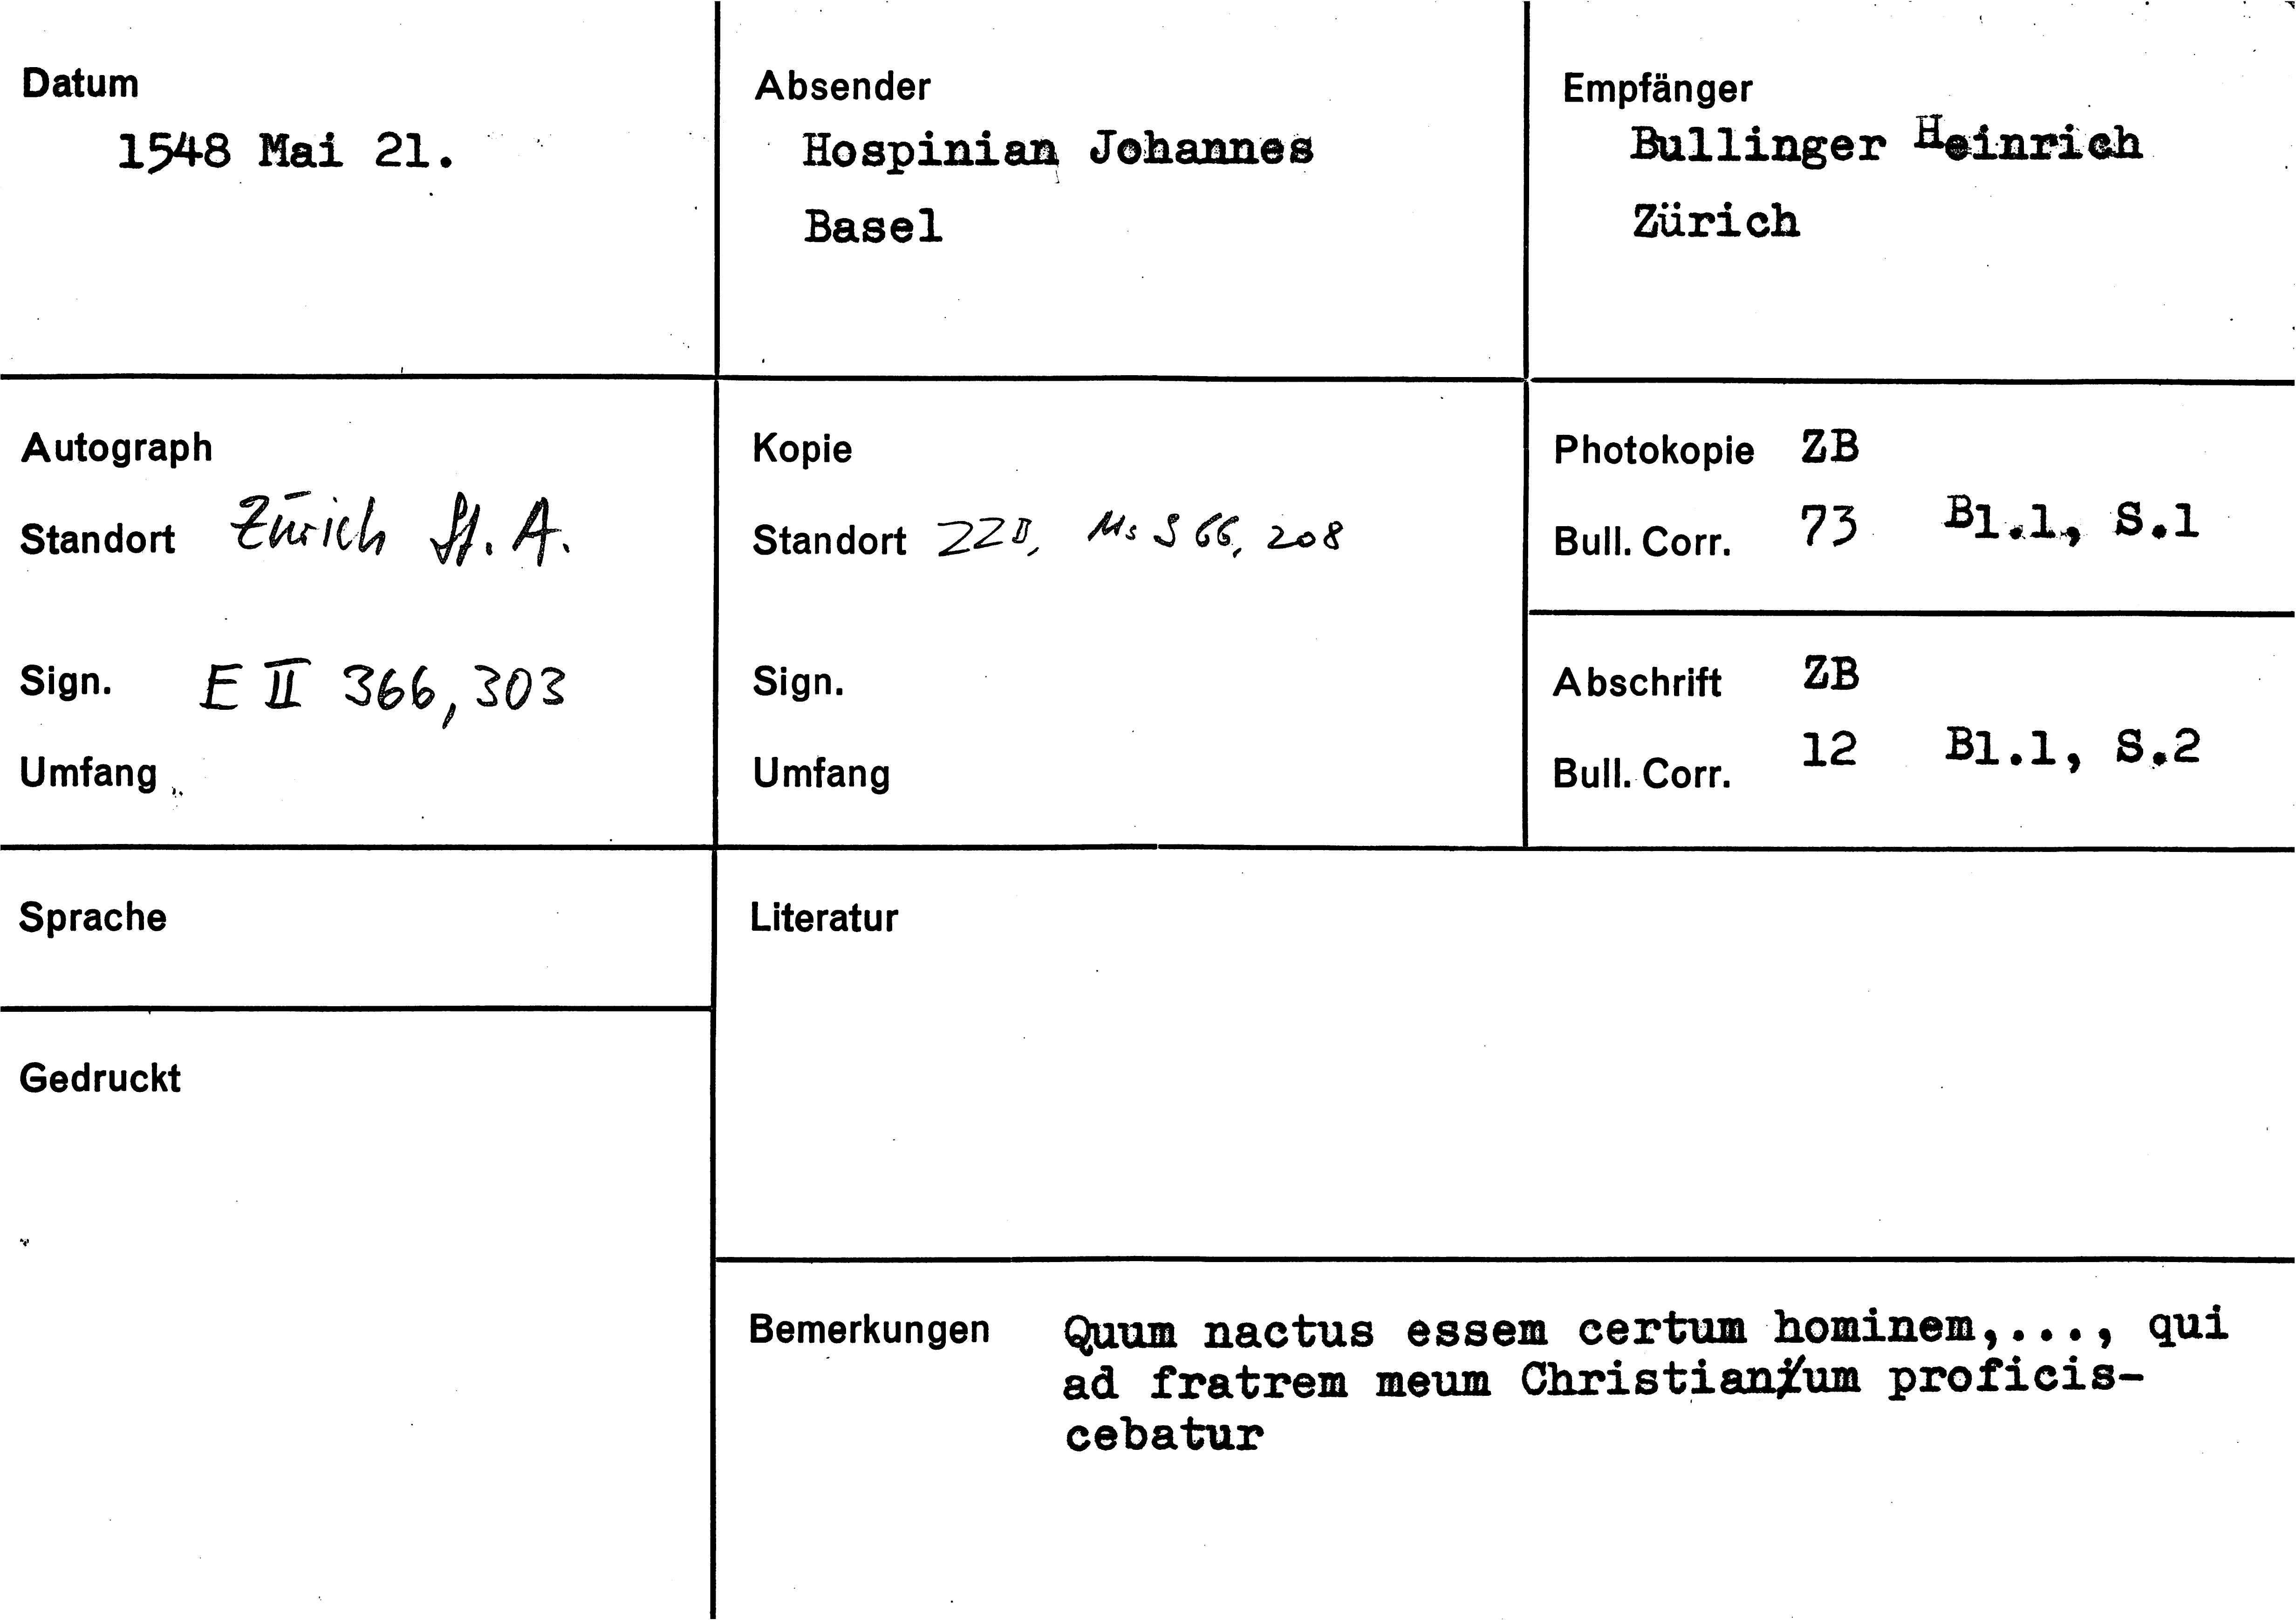 Datum
1548 Mai 21.
Absender
Hospinian Johannes
Basel
Empfänger
Bullinger Heinrich
Zürich
Autograph
Standort Zürich St. A.
Sign. E II 366, 303
Umfang
Kopie
Standort ZZB, Ms S 66, 208
Sign.
Umfang
Photokopie ZB
Bull. Corr. 73 Bl.1, S.1
Abschrift ZB
Bull. Corr. 12 Bl.1, S.2
Sprache
Literatur
Gedruckt
Bemerkungen Quum nactus essem certum hominem,..., qui
ad fratrem meum Christianum proficis-
cebatur